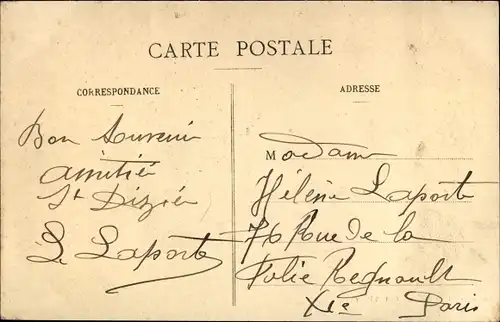 CARTE POSTALE
CORRESPONDANCE
Bon Souvenir
amitié
St Dizier
L. Laporte
ADRESSE
Madame
Hélène Laporte
76 Rue de la
Folie Regnault
XIe Paris